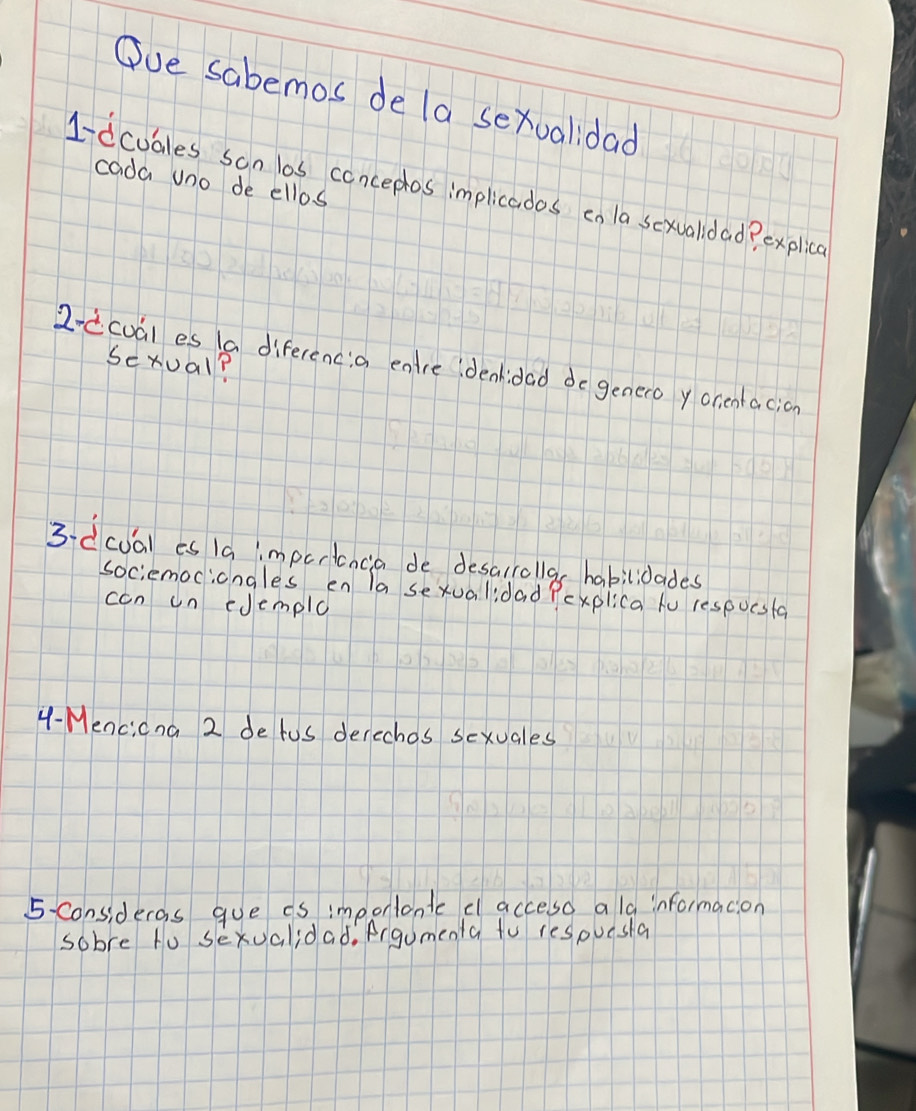 Que sabemos de la sexualidad
1-¿cuáles son los conceptos implicados en la sexualidad? explica
cada uno de ellos
2-¿cuál es la diferencia entre identidad de genero y orientacion
sexual?
3-¿cuál es la importancia de desarrollar habilidades
sociemocionales en la sexualidad? explica tu respuesta
con un ejemplo
4-Menciona 2 de tus derechos sexuales
5-Consideras que es importante el acceso a la informacion
sobre tu sexualidad. Argumenta tu respuesta